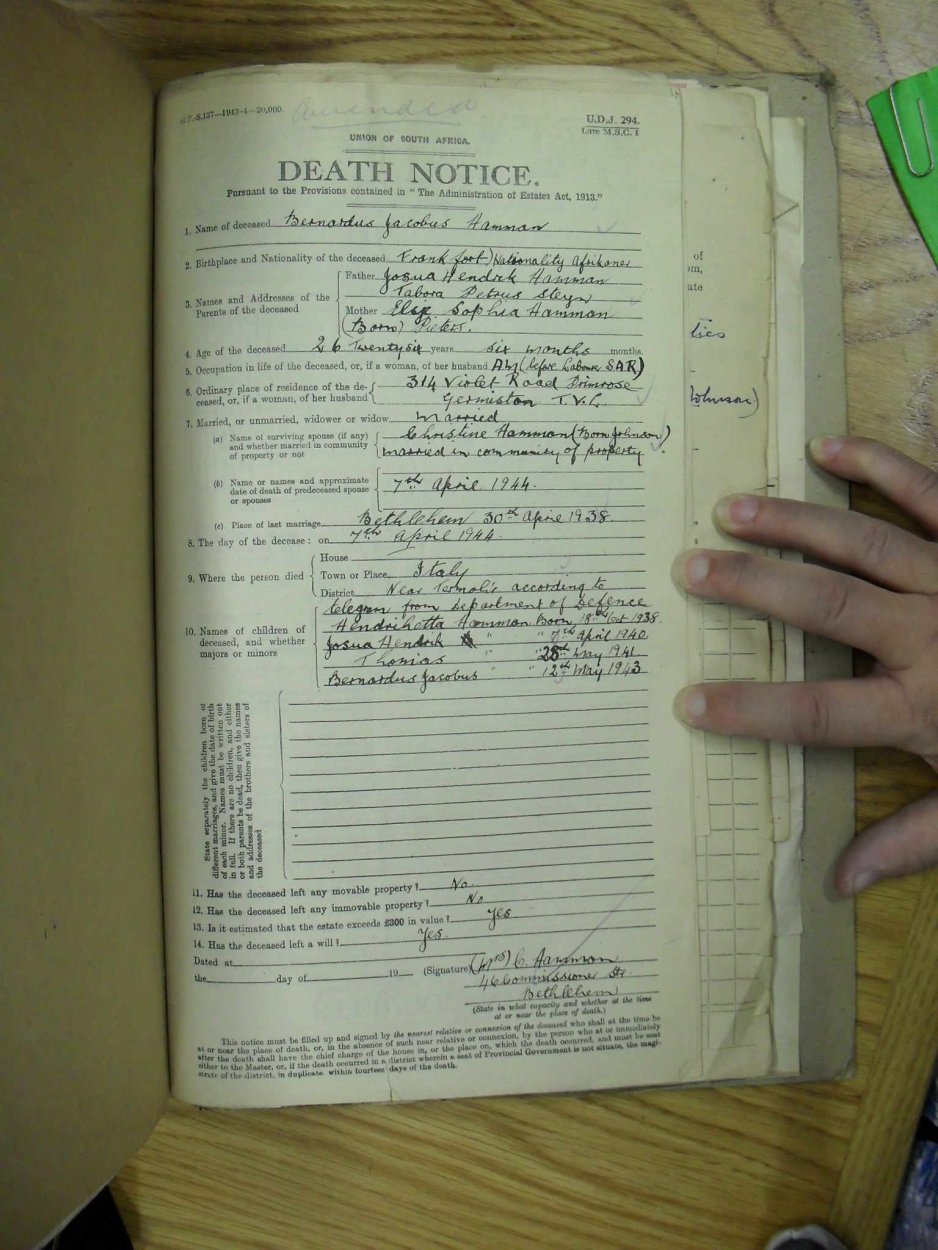 G.P.-S.137—1943-4—20,000.
Amended
U.D.J. 294.
Late M.S.C. 1
UNION OF SOUTH AFRICA.
DEATH NOTICE.
Pursuant to the Provisions contained in "The Administration of Estates Act, 1913."
1. Name of deceased Bernardus Jacobus Hamman
2. Birthplace and Nationality of the deceased Frankfort) Nationality Afrikaner
3. Names and Addresses of the Parents of the deceased
Father Josua Hendrik Hamman
Tabora Petrus Steyn
Mother Elsje Sophia Hamman
(Born) Pieters.
4. Age of the deceased 26 Twenty six years six months months
5. Occupation in life of the deceased, or, if a woman, of her husband (before Labourer SAR)
6. Ordinary place of residence of the deceased, or, if a woman, of her husband
314 Violet Road Primrose
Germiston T.V.L.
7. Married, or unmarried, widower or widow Married
(a) Name of surviving spouse (if any) and whether married in community of property or not
Christine Hamman (Born Johnson)
Married in community of property
(b) Name or names and approximate date of death of predeceased spouse or spouses
7th April 1944.
(c) Place of last marriage Bethlehem 30th April 1938.
8. The day of the decease: on 7th April 1944.
9. Where the person died
House
Town or Place Italy
District Near Termolis according to
telegram from Department of Defence
10. Names of children of deceased, and whether majors or minors
Hendrihetta Hamman Born, 18th Oct 1938.
Josua Hendrik " " 7th April 1940
Thomas " " 28th May 1941
Bernardus Jacobus " 12th May 1943
State separately the children born of
different marriages, and give the date of birth
of each minor. Names must be written out
in full. If there are no children, and either
or both parents be dead, then give the names
and addresses of the brothers and sisters of
the deceased
11. Has the deceased left any movable property? No.
12. Has the deceased left any immovable property? No
13. Is it estimated that the estate exceeds £300 in value? Yes
14. Has the deceased left a will? Yes.
Dated at
the day of 19 (Signature) (Mrs) C. Hamman
46 Commissioner Str.
Bethlehem
(State in what capacity and whether at the time
at or near the place of death.)
This notice must be filled up and signed by the nearest relative or connexion of the deceased who shall at the time be
at or near the place of death, or, in the absence of such near relative or connexion, by the person who at or immediately
after the death shall have the chief charge of the house in, or the place on, which the death occurred, and must be sent
either to the Master, or, if the death occurred in a district wherein a seat of Provincial Government is not situate, the magi-
strate of the district, in duplicate within fourteen days of the death.
of
om,
ate
ties
Johnson)